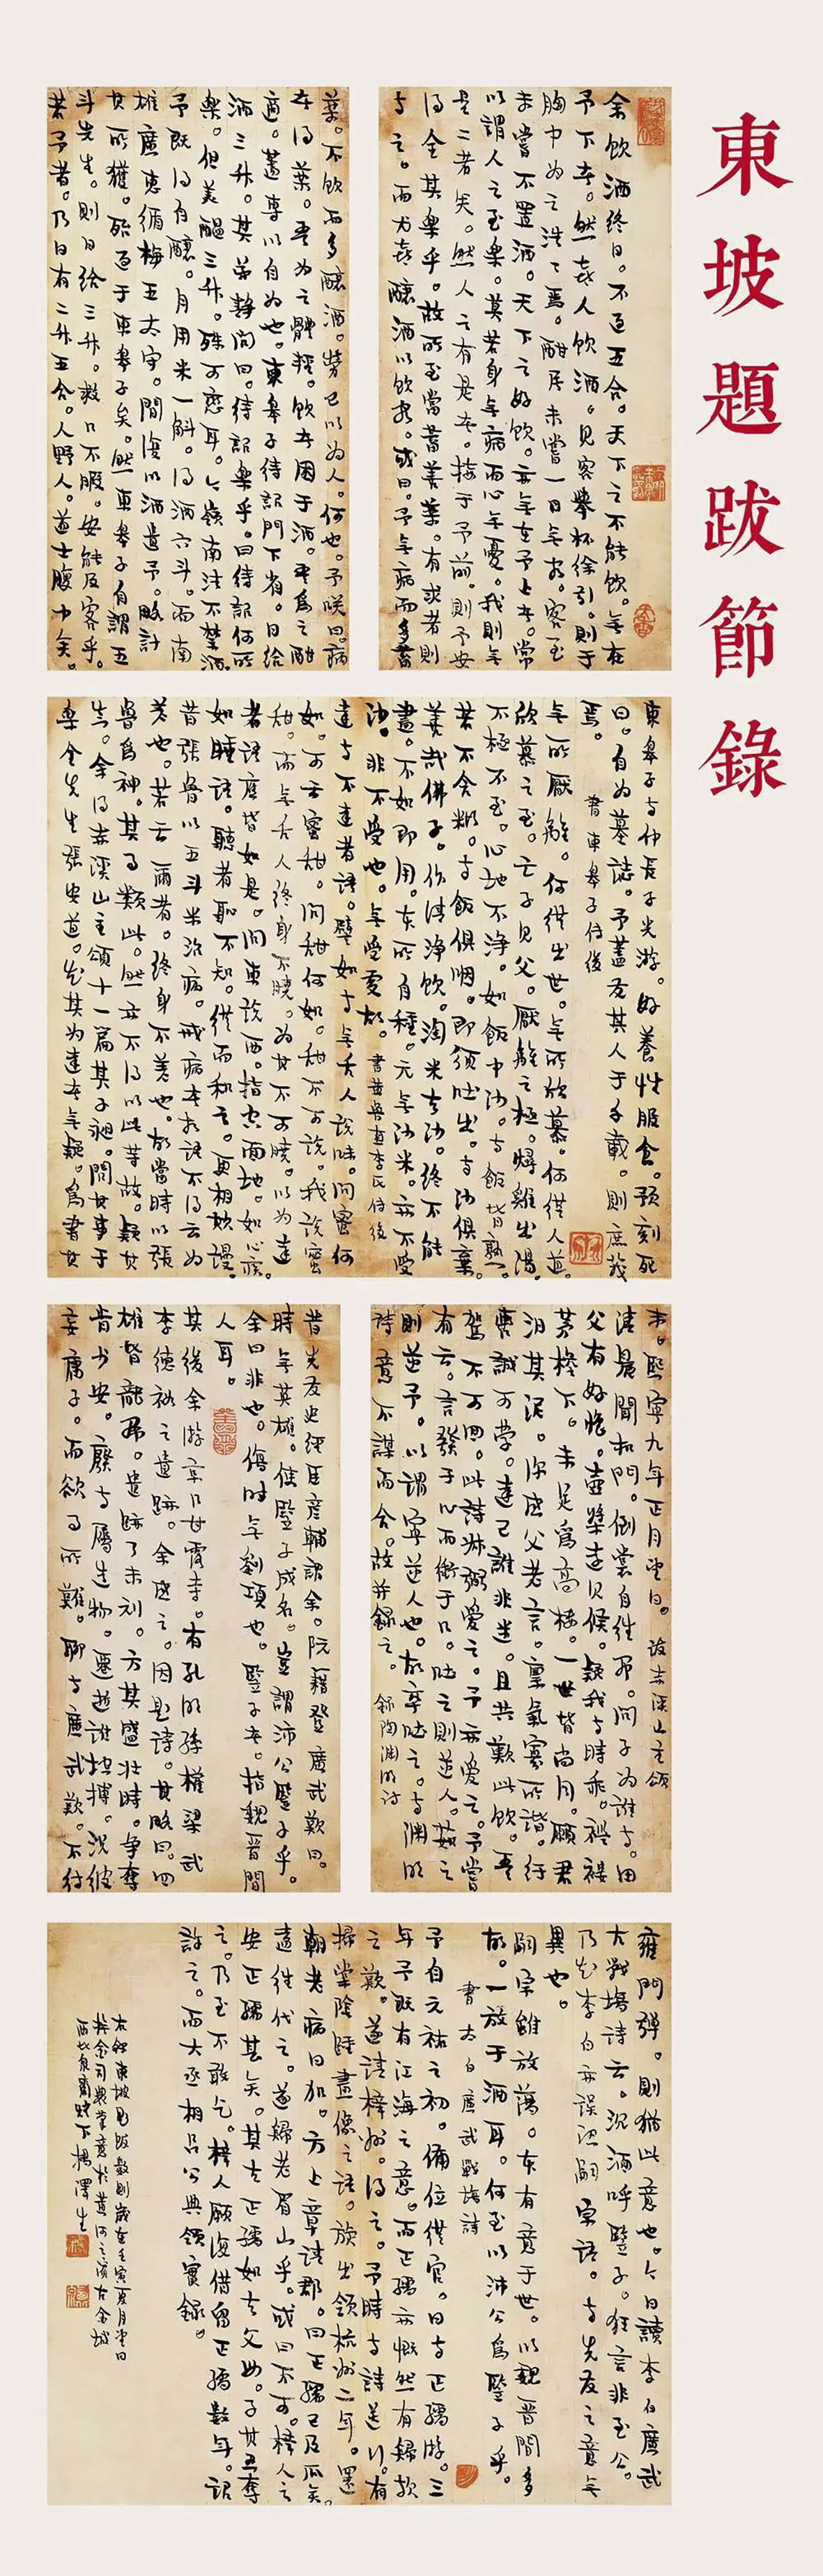 東坡題跋節錄
余飲酒終日。不過五合。天下之不能飲。無在
予下者。然喜人飲酒。見客舉杯徐引。則予
胸中為之浩〻焉。酣居未嘗一日無客。客至
未嘗不置酒。天下之好飲。亦無在予上者。常
以謂人之至樂。莫若身無病而心無憂。我則無
是二者矣。然人之有是者。接于予前。則予安
得全其樂乎。故所至當蓄善藥。有求者則
与之。而尤喜釀酒以飲客。或曰。予無病而多蓄
藥。不飲而多釀酒。勞己以為人。何也。予咲曰。病
者得藥。吾為之體輕。飲者困于酒。吾為之酣
適。蓋專以自為也。東皋子待詔門下省。日給
酒三升。其弟靜問曰。待詔樂乎。曰待詔何所
樂。但美醞三升。殊可戀耳。今嶺南法不禁酒。
予既得自釀。月用米一斛。得酒六斗。而南
雄廣惠循梅五太守。間復以酒遺予。略計
其所獲。殆過于東皋子矣。然東皋子自謂五
斗先生。則日給三升。救口不暇。安能及客乎。
若予者。乃日有二升五合。入野人。道士腹中矣。
東皋子与仲長子光游。好養性服食。預刻死
日。自為墓誌。予蓋友其人于千載。則庶幾
焉。
書東皋子傳後
無所厭離。何從出世。無所欣慕。何從入道。
欣慕之至。亡子見父。厭離之極。燖雞出湯。
不極不至。心地不淨。如飯中沙。与飯皆熟。
若不含糊。与飯俱咽。即須吐出。与沙俱棄。
善哉佛子。作清淨飲。淘米去沙。終不能
盡。不如即用。本所自種。元無沙米。亦不受
沙。非不受也。無受處故。書黄魯直李氏傳後
達与不達者語。譬如与無舌人說味。問蜜何
如。可云蜜甜。問甜何如。甜不可說。我說蜜
甜。而無舌人終身不曉。為其不可曉。以為達
者語應皆如是。問東說西。指空畫地。如心疾。
如睡語。聽者恥不知。從而和之。更相欺謾。
昔張魯以五斗米治病。戒病者相語不得云為
若也。若云爾者。終身不差也。故當時以張
魯為神。其事類此。然亦不得以此等故。疑其
真。余得赤溪山主頌十一篇其子昶。問其事于
樂全先生張安道。知其為達者無疑。為書其
末。熙寧九年正月望日。跋赤溪山主頌
清晨聞扣門。倒裳自往開。問子為誰与。田
父有好懷。壺漿遠見候。疑我与時乖。襤褸
茅檐下。未足為高棲。一世皆尚同。願君
汩其泥。深感父老言。稟氣寡所諧。紆
轡誠可學。違己詎非迷。且共歡此飲。吾
駕不可回。此詩叔弼愛之。予亦愛之。予嘗
有云。言發于心而衝于口。吐之則逆人。茹之
則逆予。以謂寧逆人也。故卒吐之。与淵明
詩意不謀而合。故并録之。録陶淵明詩
昔先友史經臣彥輔謂余。阮籍登廣武歎曰。
時無英雄。使豎子成名。豈謂沛公豎子乎。
余曰非也。傷時無劉項也。豎子者。指魏晉間
人耳。
其後余游京口甘露寺。有孔明孫權梁武
李德裕之遺跡。余感之。因題詩。其略曰。四
雄皆龍虎。遺跡了未刓。方其盛壯時。爭奪
肯少安。廢与屬造物。遷逝誰控摶。況彼
妄庸子。而欲事所難。聊与廣武歎。不待
雍門彈。則猶此意也。今日讀李白廣武
古戰場詩云。沉酒呼豎子。狂言非至公。
乃知李白亦誤認嗣宗語。与先友之意無
異也。
嗣宗雖放蕩。本有意于世。以魏晉間多
故。一放于酒耳。何至以沛公為豎子乎。
書太白廣武戰場詩
予自元祐之初。備位從官。日与正孺游。三
年予既有江海之意。而正孺亦慨然有歸歟
之歎。遂請梓州。得之。予時与詩送行。有
掃棠陰踵畫像之語。旋出領杭州二年。還
朝老病日加。方上章請郡。曰正孺已及瓜矣。
遠往代之。遂歸老眉山乎。或曰不可。梓人之
安正孺甚矣。其去正孺如去父母。子其忍奪
之。乃至不敢乞。梓人願復借留正孺數年。詔
許之。而大丞相呂公典領實録。
右録東坡題跋數則歲在壬寅夏月望日
意於黄河之濱古金城
燈下楊澤生